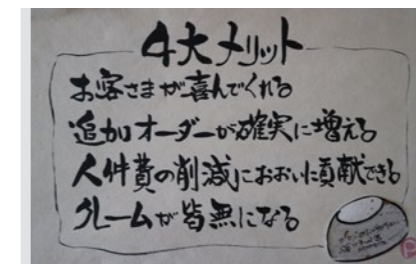 4大メリット
お客さまが喜んでくれる
追加オーダーが確実に増える
人件費の削減におおいに貢献できる
クレームが皆無になる